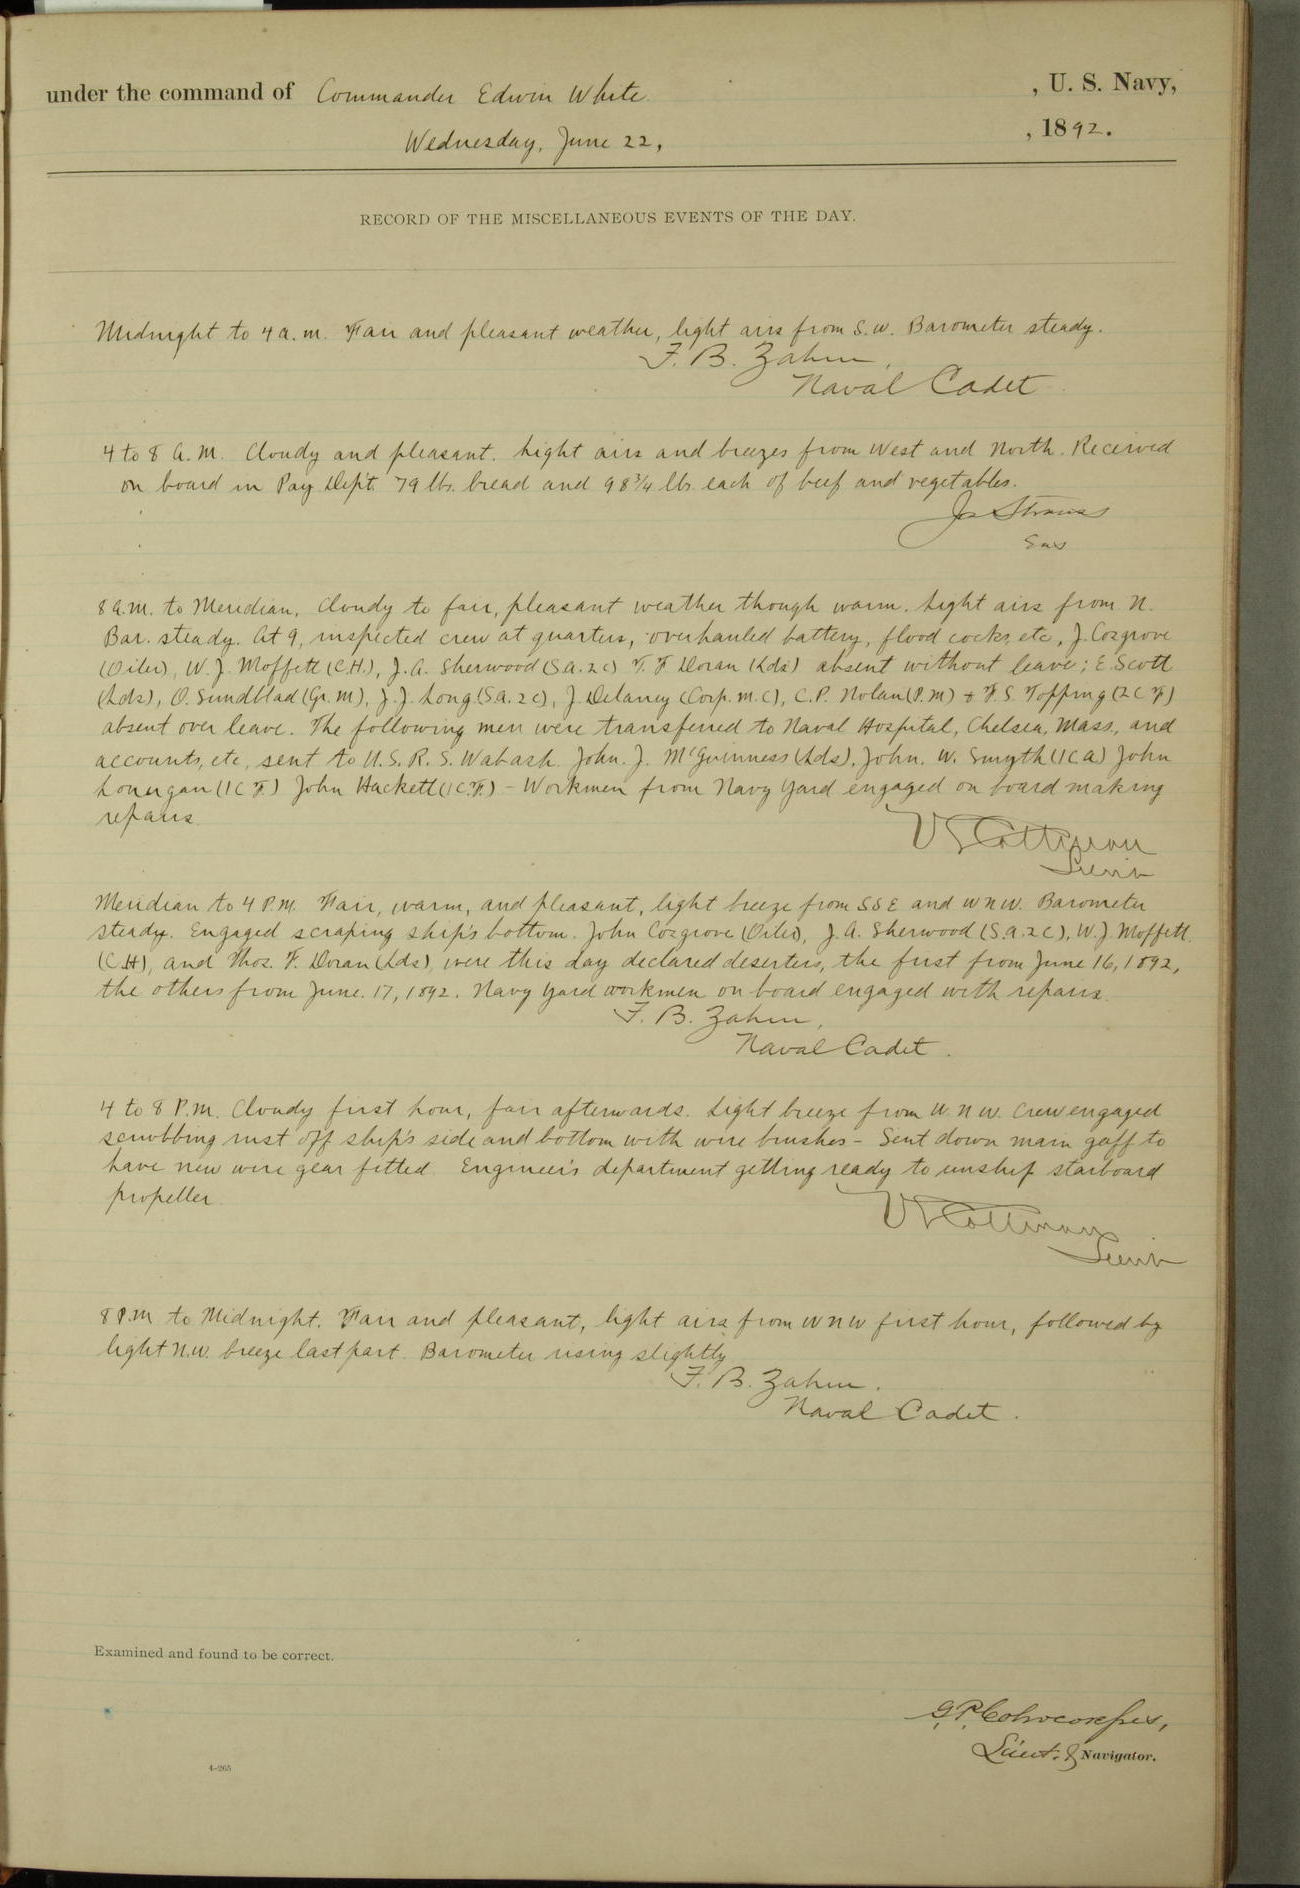 under the command of Commander Edwin White , U. S. Navy,
Wednesday, June 22, , 1892.
RECORD OF THE MISCELLANEOUS EVENTS OF THE DAY.
Midnight to 4 a.m. Fair and pleasant weather, light airs from S.W. Barometer steady.
F. B. Zahm,
Naval Cadet
4 to 8 A.M. Cloudy and pleasant. Light airs and breezes from West and North. Received
on board in Pay Dep't. 79 lbs. bread and 98 3/4 lbs. each of beef and vegetables.
Jos Strauss
Ens
8 a.m. to Meridian. Cloudy to fair, pleasant weather though warm. Light airs from N.
Bar. steady. At 9, inspected crew at quarters, overhauled battery, flood cocks, etc, J. Cosgrove
(Oiler), W. J. Moffett (C.H.), J. A. Sherwood (S.A. 2c) T. F. Doran (Lds) absent without leave; E. Scott
(Lds), O. Sundblad (Gr. M), J. J. Long (S.A. 2c), J. Delaney (Corp. M. C), C. P. Nolan (P.M) & F. S. Topping (2 C F)
absent over leave. The following men were transferred to Naval Hospital, Chelsea, Mass, and
accounts, etc, sent to U.S.R.S. Wabash. John. J. McGuinness (Lds), John. W. Smyth (1 C a) John
Lonergan (1 C F) John Hackett (1 C.F.) - Workmen from Navy Yard engaged on board making
repairs.
Lieut
Meridian to 4 P.M. Fair, warm, and pleasant, light breeze from SSE and WNW. Barometer
steady. Engaged scraping ship's bottom. John Cosgrove (Oiler), J. A. Sherwood (S.a. 2 C), W. J. Moffett
(C.H), and Thos. F. Doran (Lds), were this day declared deserters, the first from June 16, 1892,
the others from June. 17, 1892. Navy Yard workmen on board engaged with repairs.
F. B. Zahm,
Naval Cadet.
4 to 8 P.M. Cloudy first hour, fair afterwards. Light breeze from W.N.W. Crew engaged
scrubbing rust off ship's side and bottom with wire brushes - Sent down main gaff to
have new wire gear fitted. Engineer's department getting ready to unship starboard
propeller.
Lieut
8 P.M to Midnight. Fair and pleasant, light airs from WNW first hour, followed by
light N.W. breeze last part. Barometer rising slightly
F. B. Zahm.
Naval Cadet.
Examined and found to be correct.
G. P. Colvocoresses,
Lieut. & Navigator.
4-265